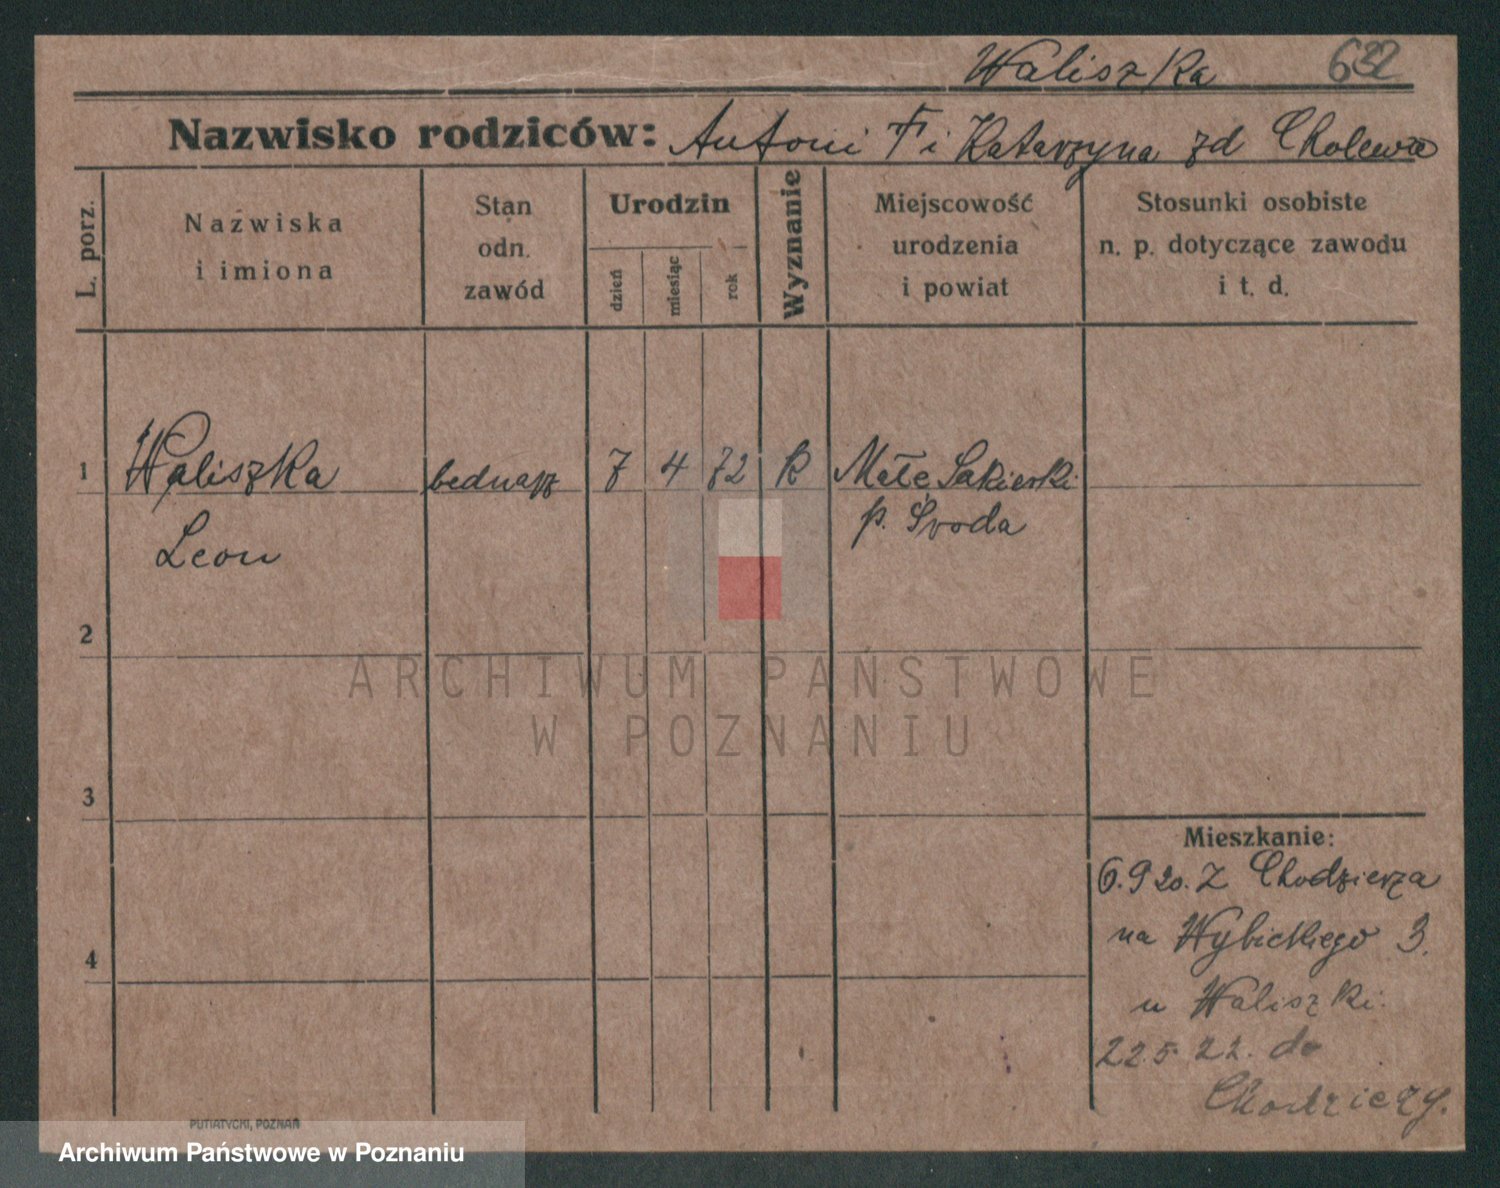 Waliszka 632
Nazwisko rodziców: Antoni Ŧ i Katarzyna zd Cholewa
L. porz.
Nazwiska
i imiona
Stan
odn.
zawód
Urodzin
dzień
miesiąc
rok
Wyznanie
Miejscowość
urodzenia
i powiat
Stosunki osobiste
n. p. dotyczące zawodu
i t. d.
1 Waliszka bednasz 7 4 72 k Małe Sakierki
Leon p. Środa
2
3
4
Mieszkanie:
6.9 20. Z Chodzierza
na Wybickiego 3.
u Waliszki.
22.5 22. do
Chodzieży.
PUTIATYCKI, POZNAŃ
ARCHIWUM PAŃSTWOWE
W POZNANIU
Archiwum Państwowe w Poznaniu